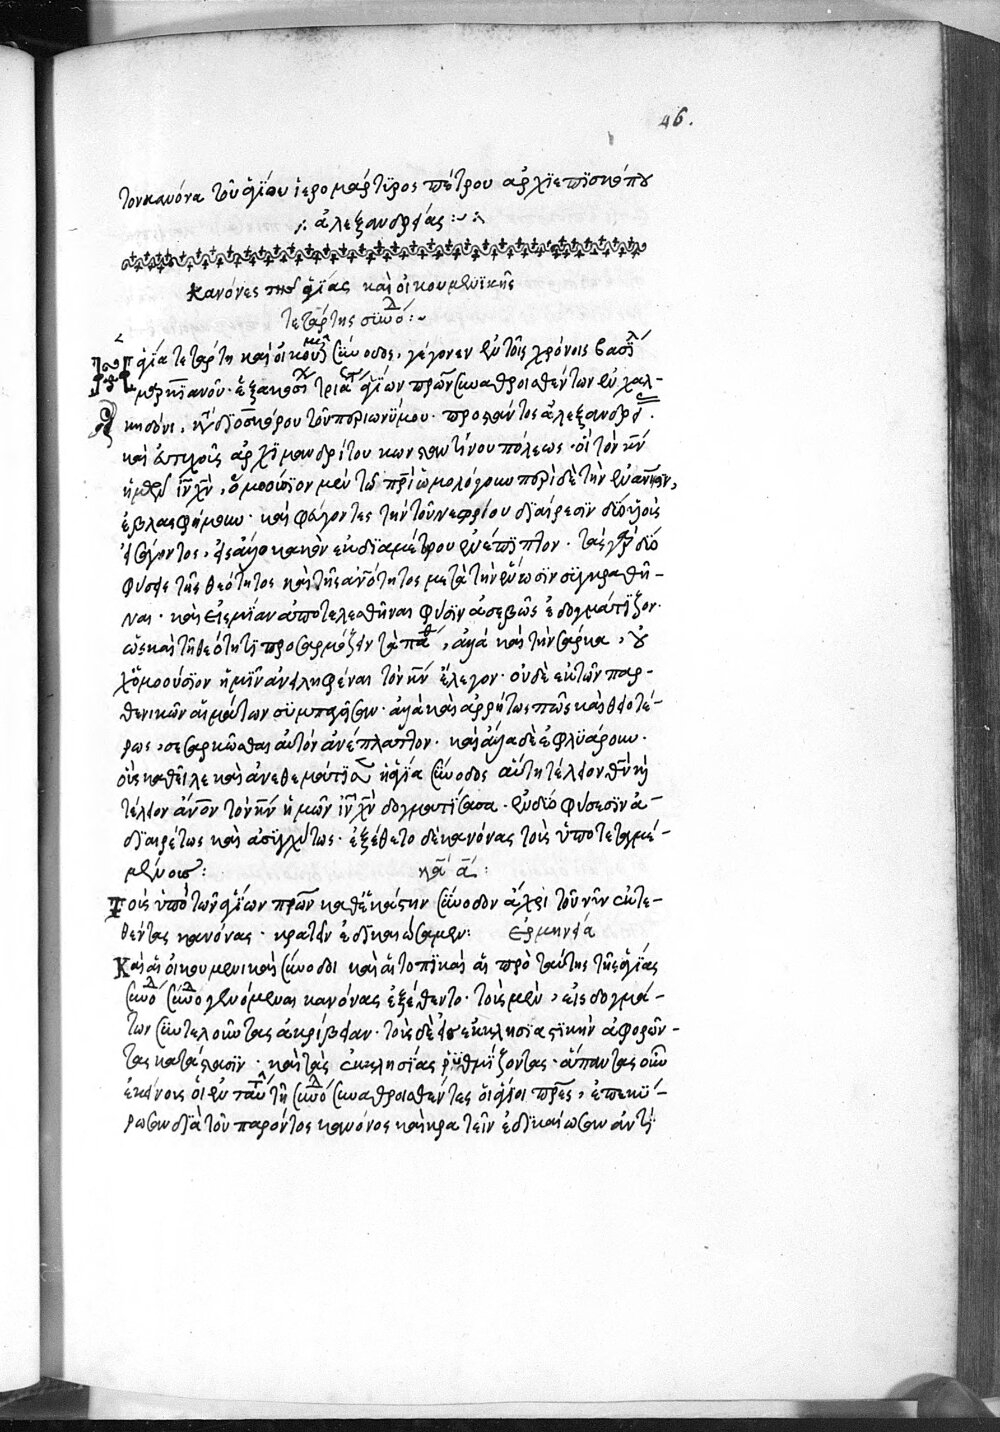 46.
τὸν κανόνα τοῦ ἁγίου ἱερομάρτυρος πέτρου ἀρχιεπισκόπου
ἀλεξανδρείας :~
κανόνες τῆς ἁγίας καὶ οἰκουμενικῆς
τετάρτης συνοδ :~
Ἡ ἁγία τετάρτη καὶ οἰκουμ σύνοδος, γέγονεν ἐν τοῖς χρόνοις βασιλ
μαρκιανοῦ· ἑξακοσ τριακ ἁγίων πρων συναθροισθέντων ἐν χαλ-
κηδόνι, διοσκόρου τοῦ πονιωνύμου· προσπάντος ἀλεξανδρεί.
καὶ εὐτυχοῦς ἀρχιμανδρίτου κωνσταντίνου πόλεως· οἱ τὸν κν
ἡμῶν ιν χν, ὁμοούσιον μὲν τῶ πρι ὡμολόγουν περὶ δὲ τὴν ἐνανπησιν,
ἐβλασφήμουν· καὶ φεύγοντες τὴν τοῦ νεστορίου διαίρεσιν δύο υἱοὺς
λέγοντος, εἰς ἄλλο κακὸν ἐκ διαμέτρου ἐνέπιπτον· τὰς γὰρ δύο
φύσεις τῆς θεότητος καὶ τῆς ανότητος μετὰ τὴν ἕνωσιν συγκραθῆ-
ναι· καὶ εἰς μίαν ἀποτελεσθῆναι φύσιν ἀσεβῶς ἐδογμάτιζον·
ὡς καὶ τῇ θεότητι προσαρμόζειν τὰ πάθ, ἀλλὰ καὶ τὴν σάρκα, οὐ
χ ὁμοούσιον ἡμῖν ἀνειληφέναι τὸν κν ἔλεγον· οὐδὲ ἐκ τῶν παρ-
θενικῶν αἱμάτων συμπαγῆσαν· ἀλλὰ καὶ ἀρρήτως πῶς καὶ θειοτέ-
ρως, σεσαρκῶσθαι αὐτὸν ἀνέπλαττον· καὶ ἄλλα δὲ ἐφλυάρουν·
οὓς καθεῖλε καὶ ἀνεθεμάτισεν ἡ ἁγία σύνοδος αὕτη τέλειον θν κὴ
τέλειον ανον τὸν κν ἡμῶν ιν χν δογματίσασα· ἐν δύο φύσεσιν ἀ-
διαιρέτως καὶ ἀσυγχύτως· ἐξέθετο δὲ κανόνας τοὺς ὑποτεταγμέ-
μένους: καν α:
Τοὺς ὑπὸ τῶν ἁγίων πρων καθ' ἑκάστην σύνοδον ἄχρι τοῦ νῦν ἐκτε-
θέντας κανόνας· κρατεῖν ἐδικαιώσαμεν: ἑρμηνεία
Καὶ αἱ οἰκουμενικαὶ σύνοδοι καὶ αἱ τοπικαὶ αἱ πρὸ ταύτης τῆς ἁγίας
συνόδ συνοδ γενόμεναι κανόνας ἐξέθεντο· τοὺς μὲν, εἰς δογμά-
των συντελοῦντας ἀκρίβειαν· τοὺς δὲ εἰς ἐκκλησιαστικὴν ἀφορῶν-
τας κατάστασιν· καὶ τὰς ἐκκλησίας ῥυθμίζοντας· ἅπαντας οὖν
ἐκείνους οἱ ἐν ταύτῃ συνόδ συναθροισθέντες οἱ ἅγιοι πρες, ἐπεκύ-
ρωσαν διὰ τοῦ παρόντος κανόνος καὶ κρατεῖν ἐδικαίωσαν ἀντὶ